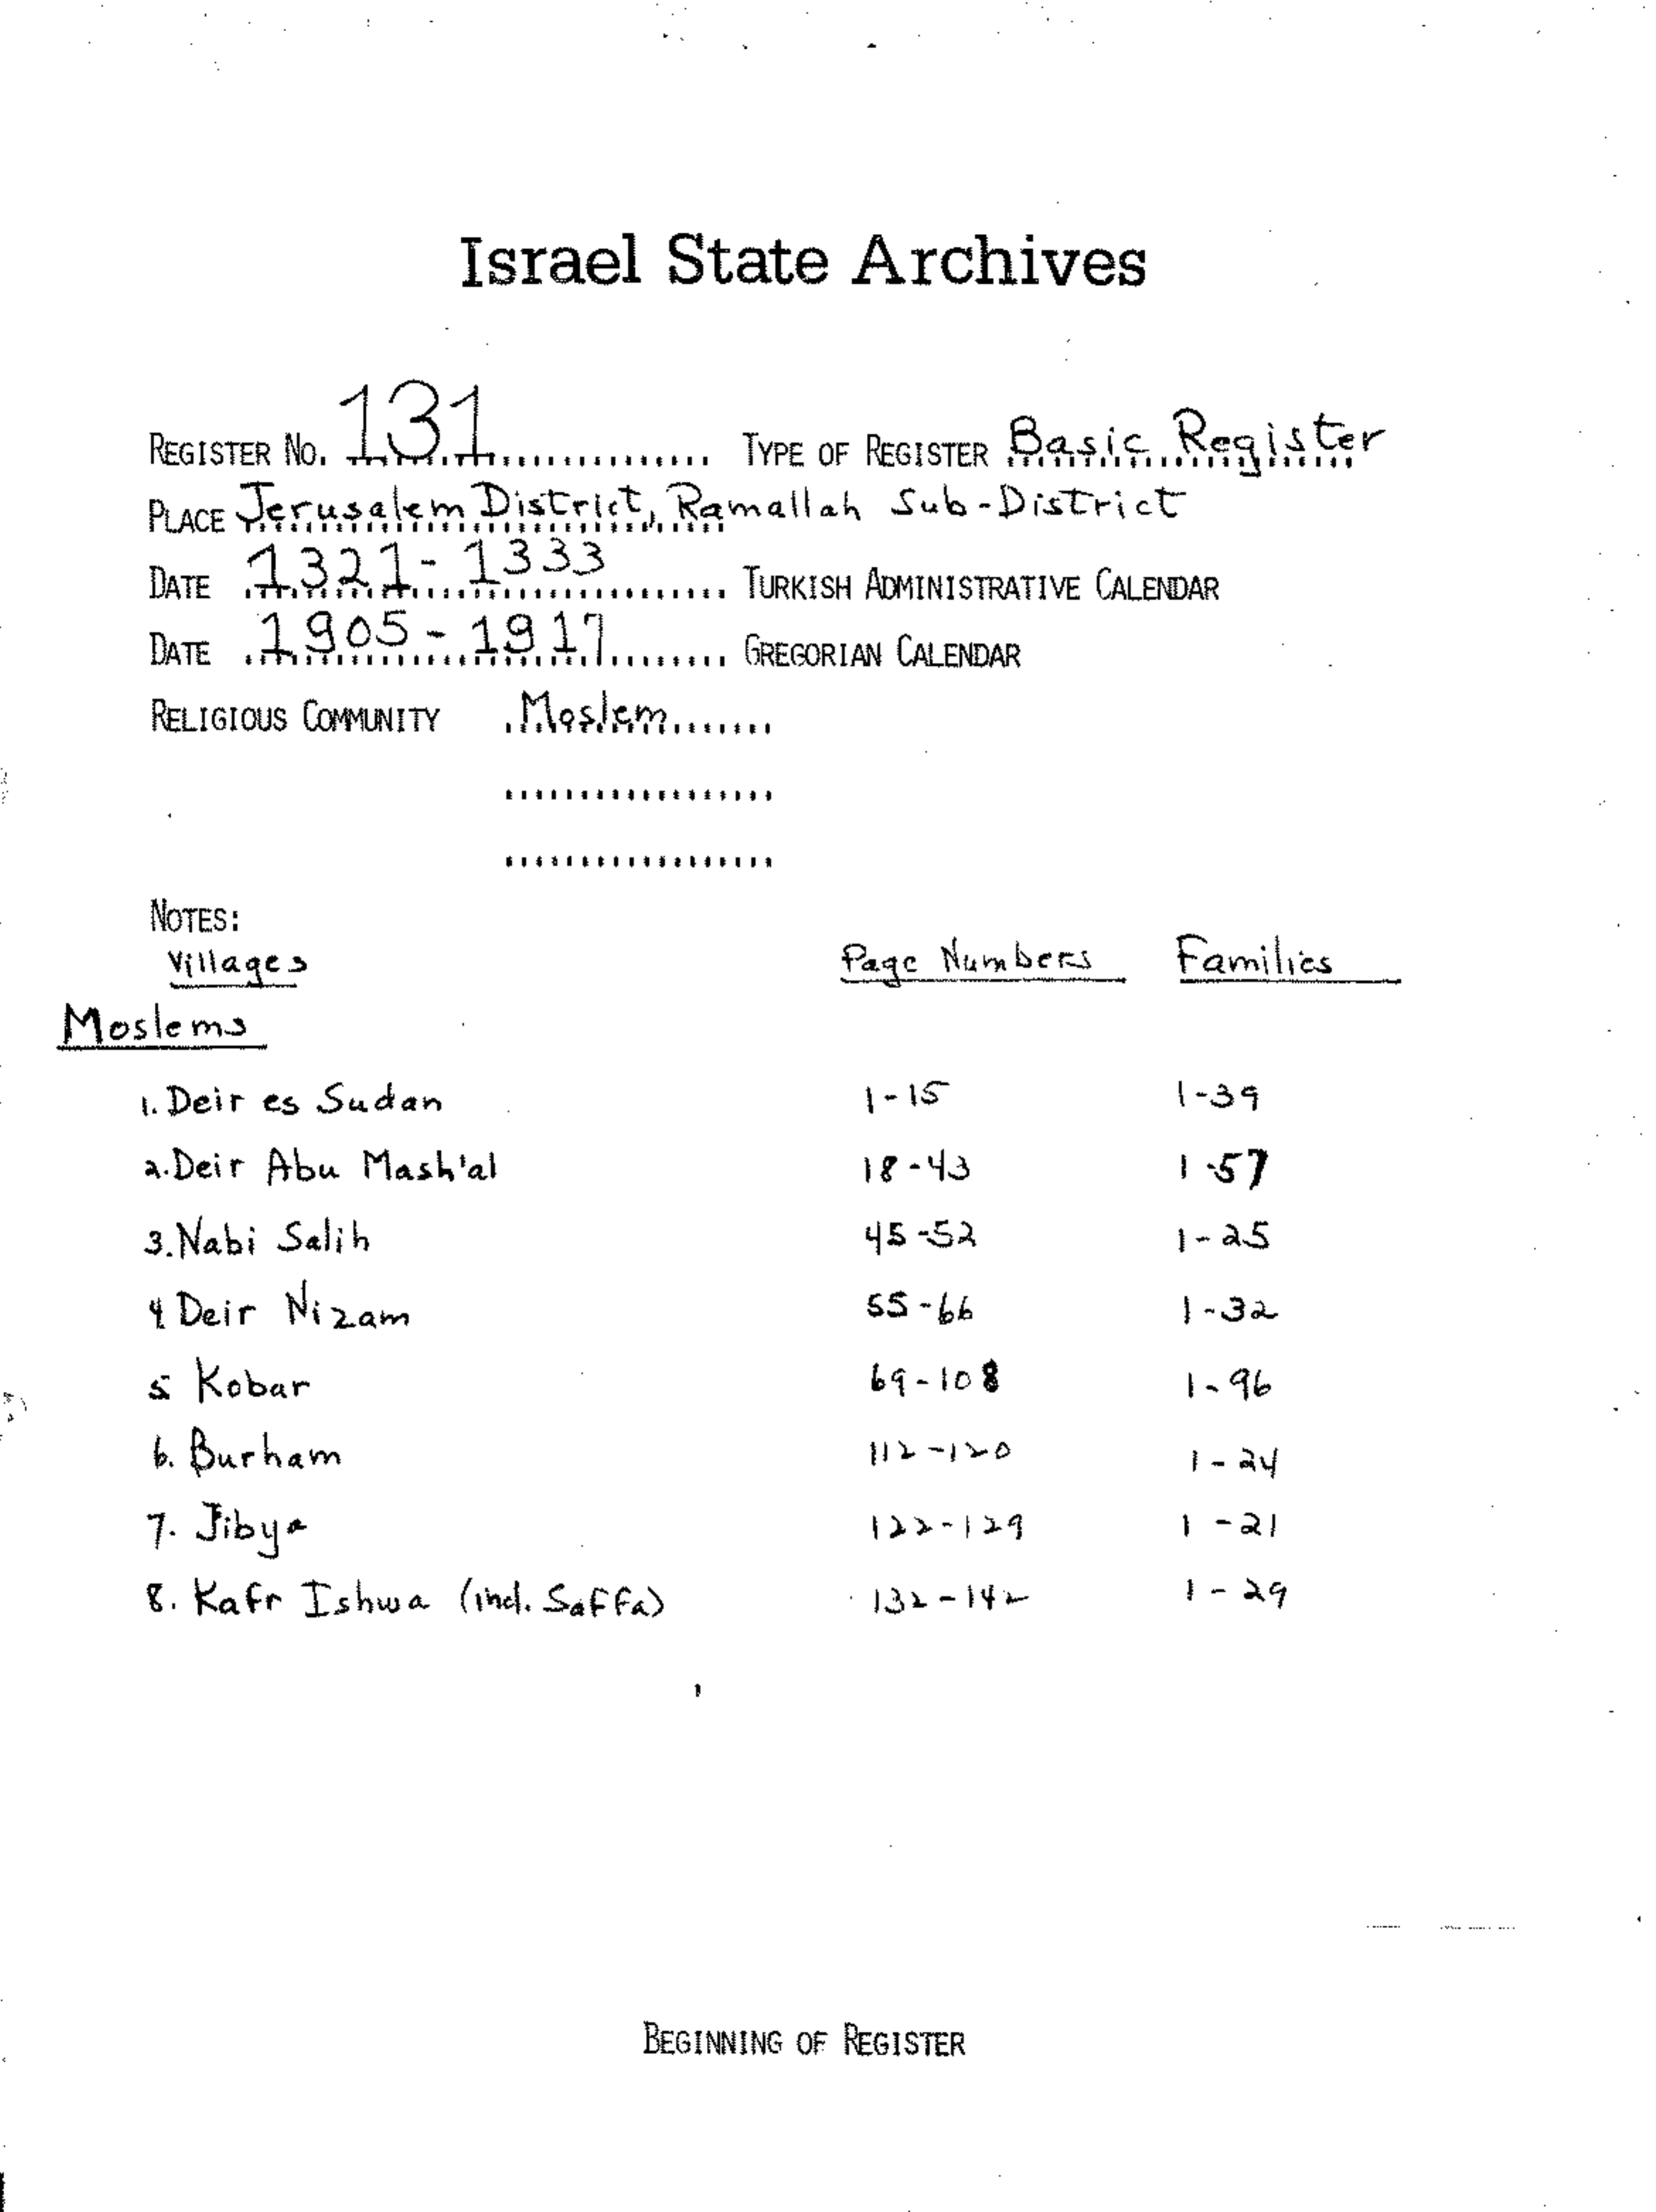 Israel State Archives
REGISTER No. 131 TYPE OF REGISTER Basic Register
PLACE Jerusalem District, Ramallah Sub-District
DATE 1321-1333 TURKISH ADMINISTRATIVE CALENDAR
DATE 1905-1917 GREGORIAN CALENDAR
RELIGIOUS COMMUNITY Moslem
NOTES:
Villages Page Numbers Families
Moslems
1. Deir es Sudan 1-15 1-39
2. Deir Abu Mash'al 18-43 1-57
3. Nabi Salih 45-52 1-25
4. Deir Nizam 55-66 1-32
5. Kobar 69-108 1-96
6. Burham 112-120 1-24
7. Jibya 122-129 1-21
8. Kafr Ishwa (incl. Saffa) 132-142 1-29
BEGINNING OF REGISTER